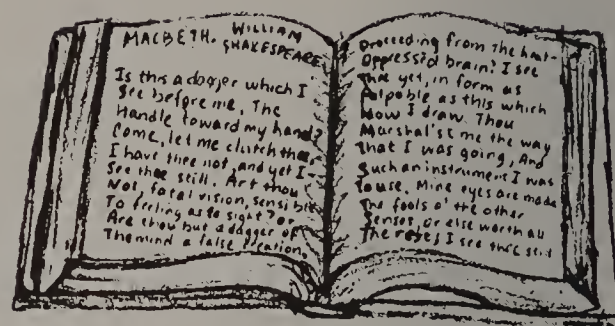 MACBETH. WILLIAM
SHAKESPEARE
Is this a dagger which I
See before me, The
Handle toward my hand?
Come, let me clutch thee.
I have thee not, and yet I
See thee still. Art thou
Not, fatal vision, sensible
To feeling as to sight? or
Are thou but a dagger of
The mind a false creation,
Proceeding from the heat-
Oppressed brain? I see
Thee yet, in form as
Palpable as this which
Now I draw. Thou
Marshal'st me the way
That I was going, And
Such an instrument I was
To use. Mine eyes are made
The fools o' the other
Senses, or else worth all
The rest, I see thee still